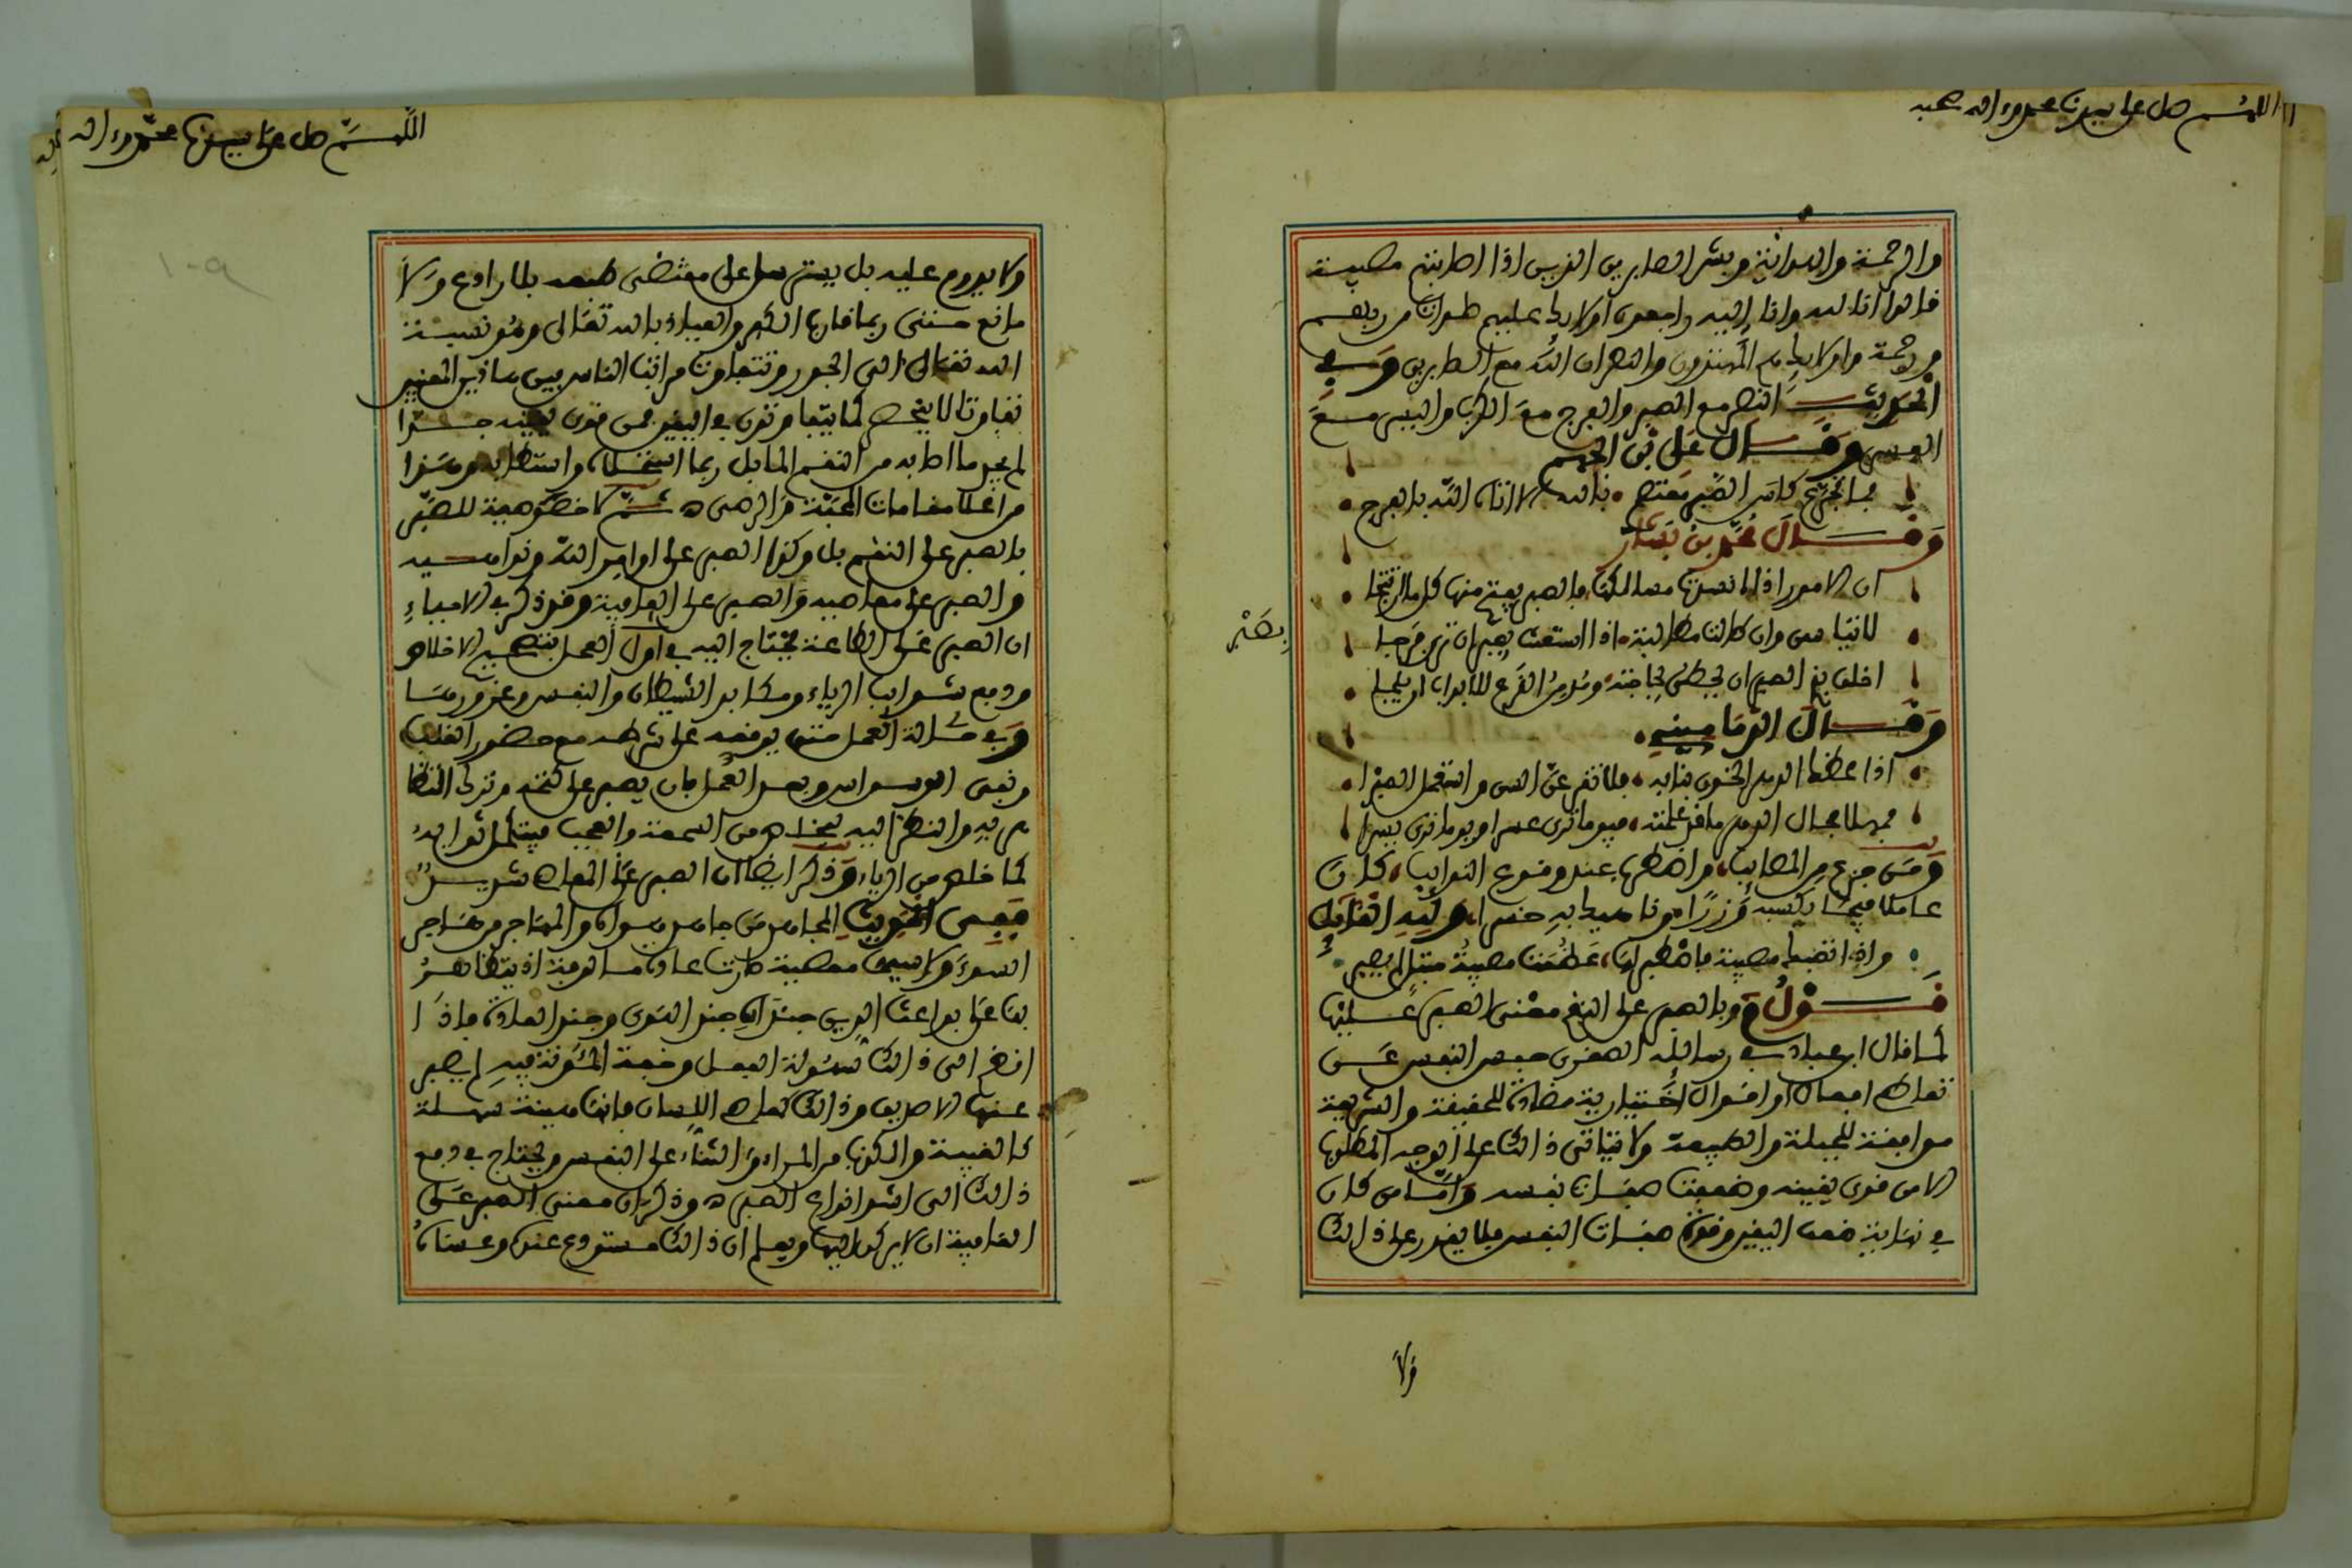 اللهم صل على سيدنا محمد وءاله وصحبه
والرحمة والهداية وبشر الصابرين الذين اذا اصابتهم مصيبة
قالوا انا لله وانا إليه راجعون اولائك عليهم صلوات من ربهم
ورحمة واولائك هم المهتدون والله ان الله مع الصابرين وفي
الحديث النصر مع الصبر والفرج مع الكرب واليسر مع
العسر وقال علي بن الجهم
تجرع كاس الصبر معتصم بالله الا اتاه الله بالفرج
وقال محمد بن بشار
ان الامور اذا انسدت مسالكها فالصبر يفتح منها كل ما ارتتجا
لا تياسن وان طالت مطالبة اذا استعنت بصبر ان ترى فرجا
بصبر
اخلق بذي الصبر ان يحظى بحاجته ومدمن القرع للابواب ان يلجا
وقال الدماميني
اذا عضك الدهر الخئون بنابه فلا تقر عن السن واستعمل الصبرا
فمهلا فحال الدهر ما قد علمته فيوما ترى عسرا ويوما ترى يسرا
ومن جزع من المصائب واضطرب عند وقوع النوائب كان
عاملا فيما يكسبه وزرا وفاته خسرا ولله القائل
واذا اتتك مصيبة فاصبر لها عظمت مصيبة مبتلى لم يصبر
قوله وبالصبر على النعم معنى الصبر عليها
كما قال ابن عباد في رسائله الصغرى حبس النفس عن
تعاطي افعال او اقوال اختيارية مضادة للحقيقة والشريعة
موافقة للجبلة والطبيعة ولا يتاتى ذلك على الوجه المطلوب
الا من قوي يقينه وضعفت صفات نفسه واما من كان
في نهاية ضعف اليقين وقوة صفات النفس فلا يقدر على ذالك
ولا
اللهم صل على سيدنا محمد وءاله
ولا يدوم عليه بل يسترسل على مقتضى طبعه بلا رادع ولا
مانع حتى ربما قارب الكفر والعياذ بالله تعالى ونسبة
الله تعالى الى الجور وتتفاوت مراتب الناس بين هاذين المعنيين
تفاوتا لا ينحصر كما يتفاوتون في اليقين فمن قوي يقينه جدا
لم يجد ما اصابه من النقم الما بل ربما استحلاه واستطابه وهذا
من اعلا مقامات المحبة والرضى ثم لا خصوصية للصبر
بالصبر على النقم بل وكذا الصبر على اوامر الله ونواهيه
والصبر على معاصيه والصبر على العافية وقد ذكر في الاحياء
ان الصبر على الطاعة يحتاج اليه في اول العمل بتصحيح الاخلاص
ودفع شوائب الرياء ومكابد الشيطان والنفس وغرورها
وفي حالة العمل حتى يوقعه على شرطه مع حضور القلب
ونفي الوسواس وبعد العمل بان يصبر على كتمه وترك التظا
هر به والنظر اليه ليخلص من السمعة والعجب فيكمل ثوابه
كما خلص من الرياء وذكر ايضا ان الصبر عن المعاصي شديد
ففي الحديث المجاهد من جاهد هواه والمهاجر من هاجر
السوء ولا سيما معصية صارت عادة مالوفة اذ يتظاهر
بها على بواعث الدين جندان جند الهوى وجند العادة فاذا
انضم الى ذالك سهولة الفعل وخفة المئونة فيه لم يصبر
عنها الا صديق وذالك كمعاصي اللسان فانها هينة سهلة
كالغيبة والكذب والمراء والثناء على النفس ويحتاج في دفع
ذالك الى اشد انواع الصبر وذكر ان معنى الصبر على
العافية ان لا يركن اليها ويعلم ان ذالك مستودع عنده وعسى